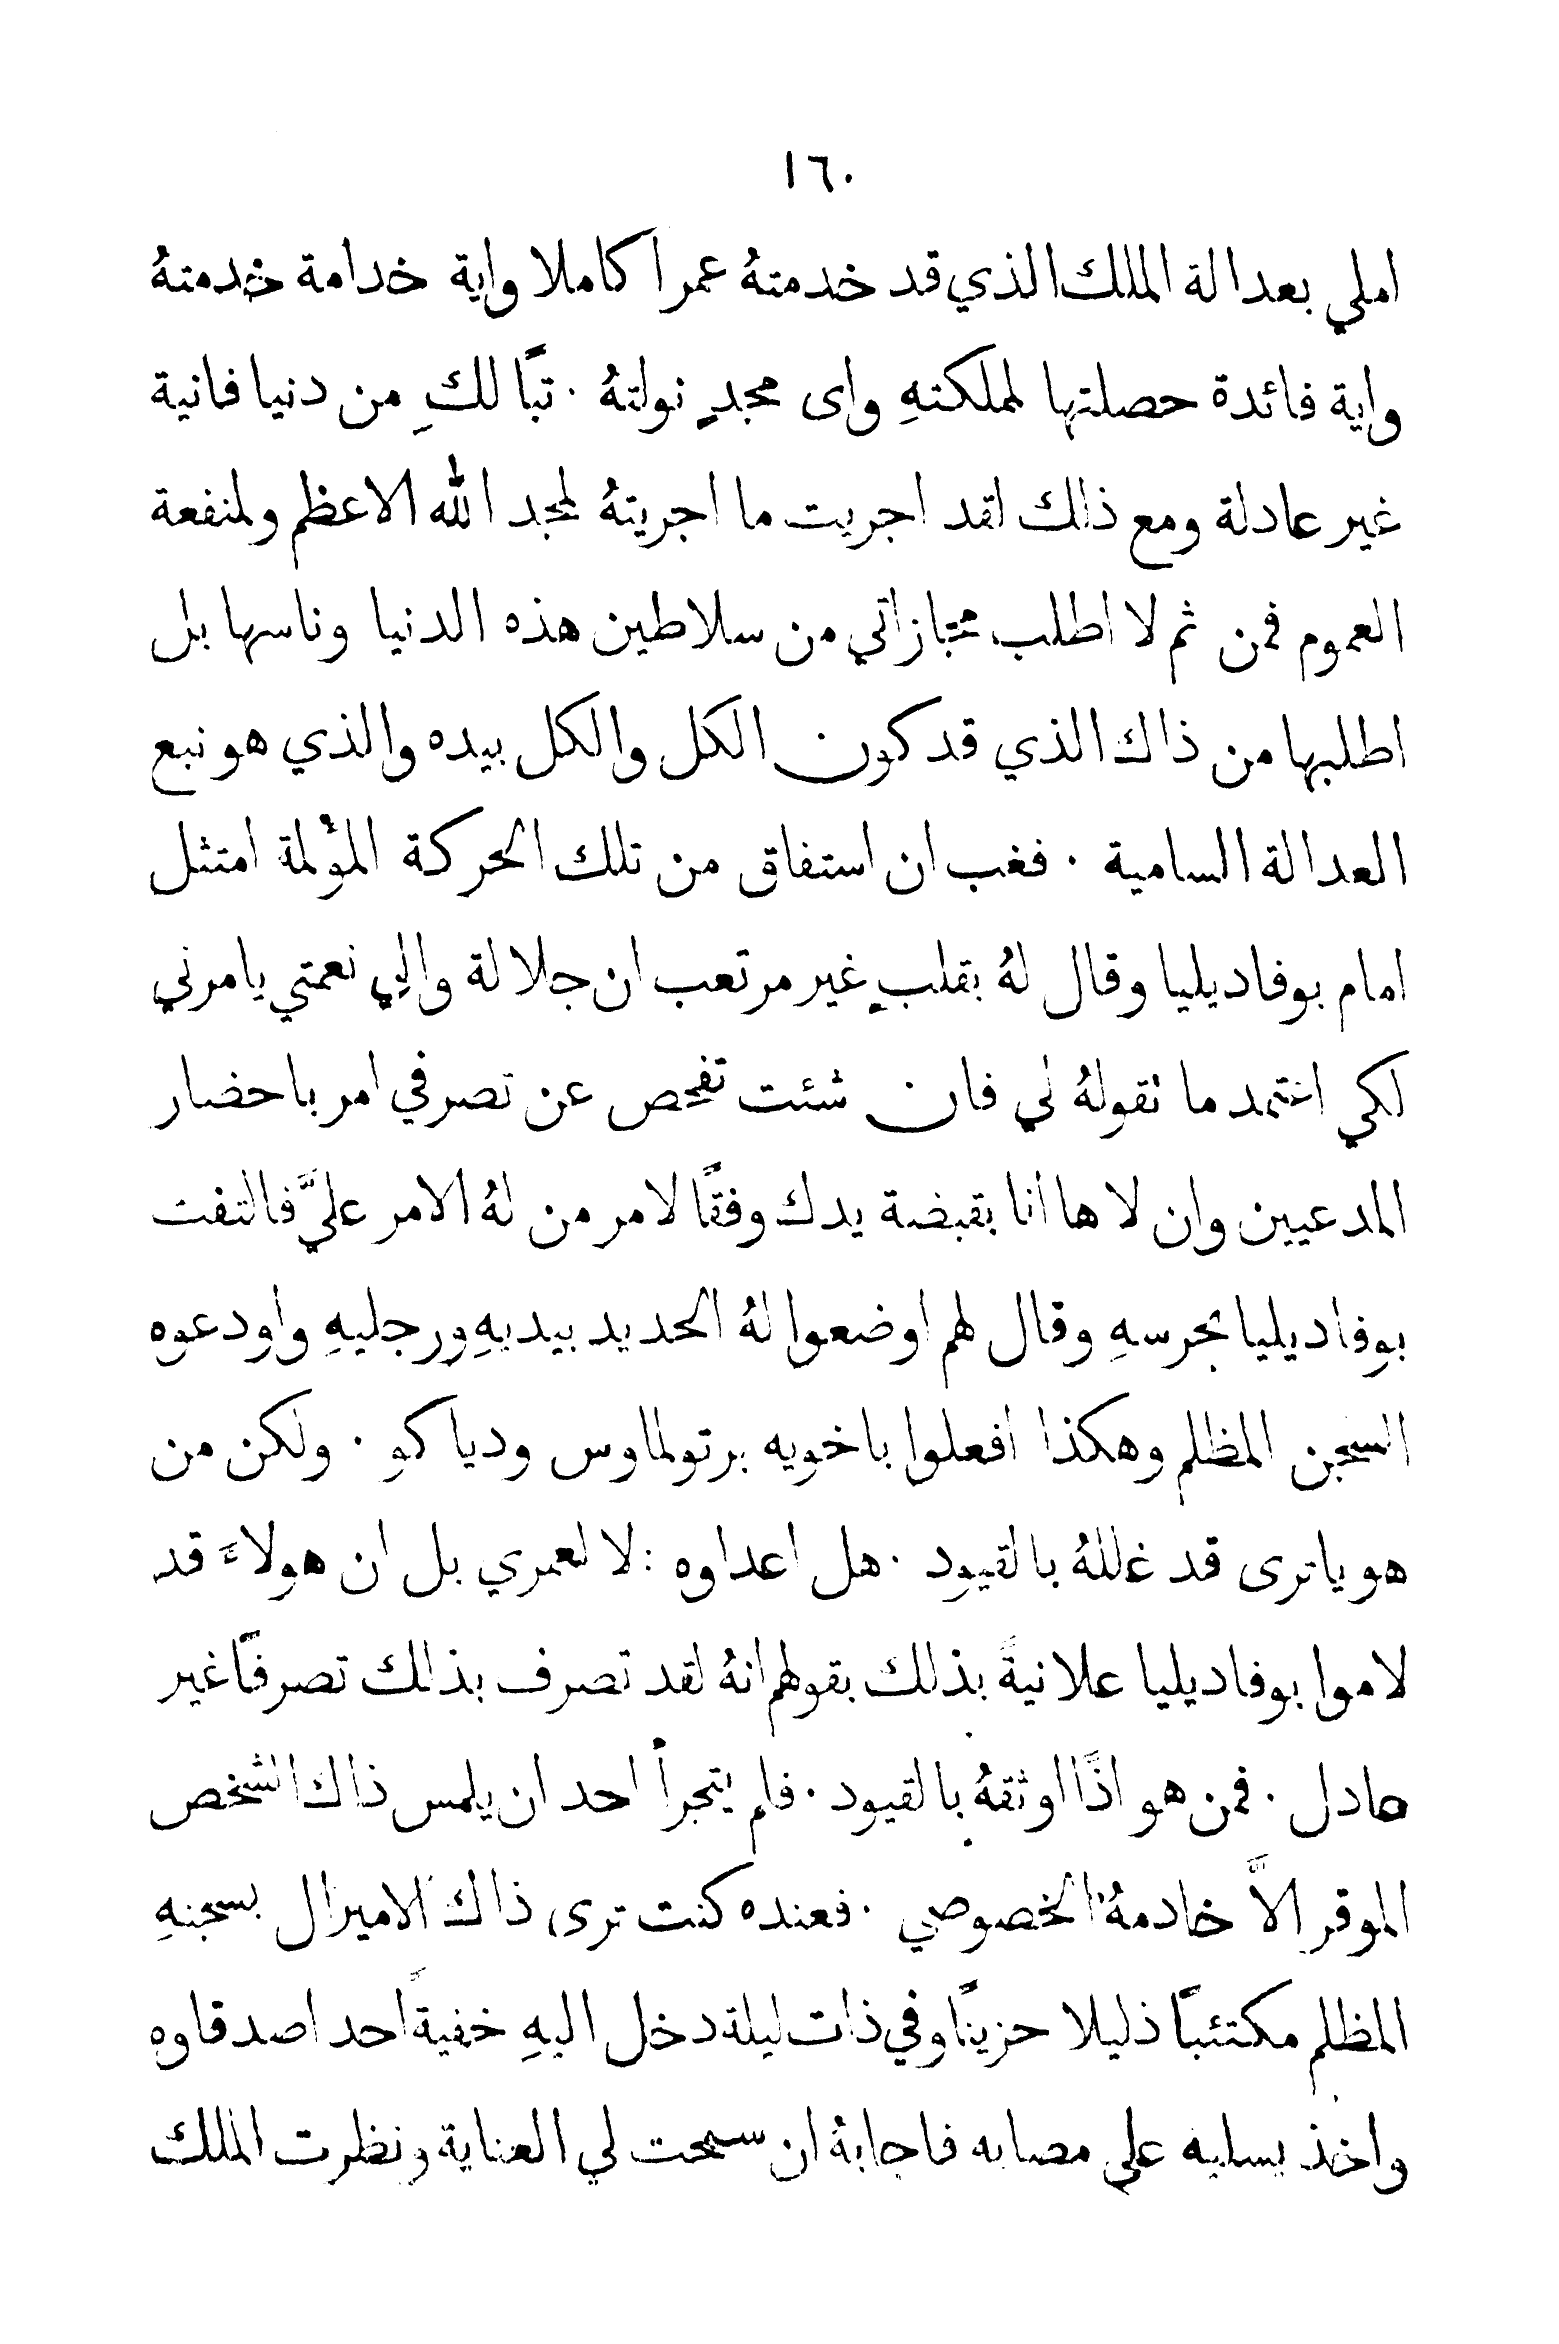 ١٦٠
املي بعدالة الملك الذي قد خدمتهُ عمرا كاملا واية خدامة خدمتهُ
واية فائدة حصلتها لمملكتهِ واى مجدٍ نولتهُ ٠ تبًا لكِ من دنيا فانية
غير عادلة ومع ذالك لقد اجريت ما اجريتهُ لمجد الله الاعظم ولمنفعة
العموم فمن ثم لا اطلب مجازاتي من سلاطين هذه الدنيا وناسها بل
اطلبها من ذاك الذي قد كون الكل والكل بيده والذي هو نبع
العدالة السامية ٠ فغب ان استفاق من تلك الحركة المؤلمة امتثل
امام بوفاديليا وقال لهُ بقلبٍ غير مرتعب ان جلالة والِي نعمتي يامرني
لكي اعتمد ما تقولهُ لي فان شئت تفحص عن تصرفي امر باحضار
المدعيين وان لا ها انا بقبضة يدك وفقًا لامر من لهُ الامر عليَّ فالتفت
بوفاديليا بحرسهِ وقال لهم اوضعوا لهُ الحديد بيديهِ ورجليهِ واودعوه
السجن المظلم وهكذا افعلوا باخويه برتولماوس ودياكو ٠ ولكن من
هو ياترى قد غللهُ بالقيود ٠ هل اعداوه : لا لعمري بل ان هولاء قد
لاموا بوفاديليا علانيةً بذلك بقولهم انهُ لقد تصرف بذالك تصرفًا غير
عادل ٠ فمن هو اذًا اوثقهُ بالقيود ٠ فلم يتجرأ احد ان يلمس ذاك الشخص
الموقر الاَّ خادمهُ الخصوصي ٠ فعنده كنت ترى ذاك الاميرال بسجنهِ
المظلم مكتئبًا ذليلا حزينًا وفي ذات ليلة دخل اليهِ خفيةً احد اصدقاوه
واخذ يسليه على مصابه فاجابهُ ان سمحت لي العناية ونظرت الملك